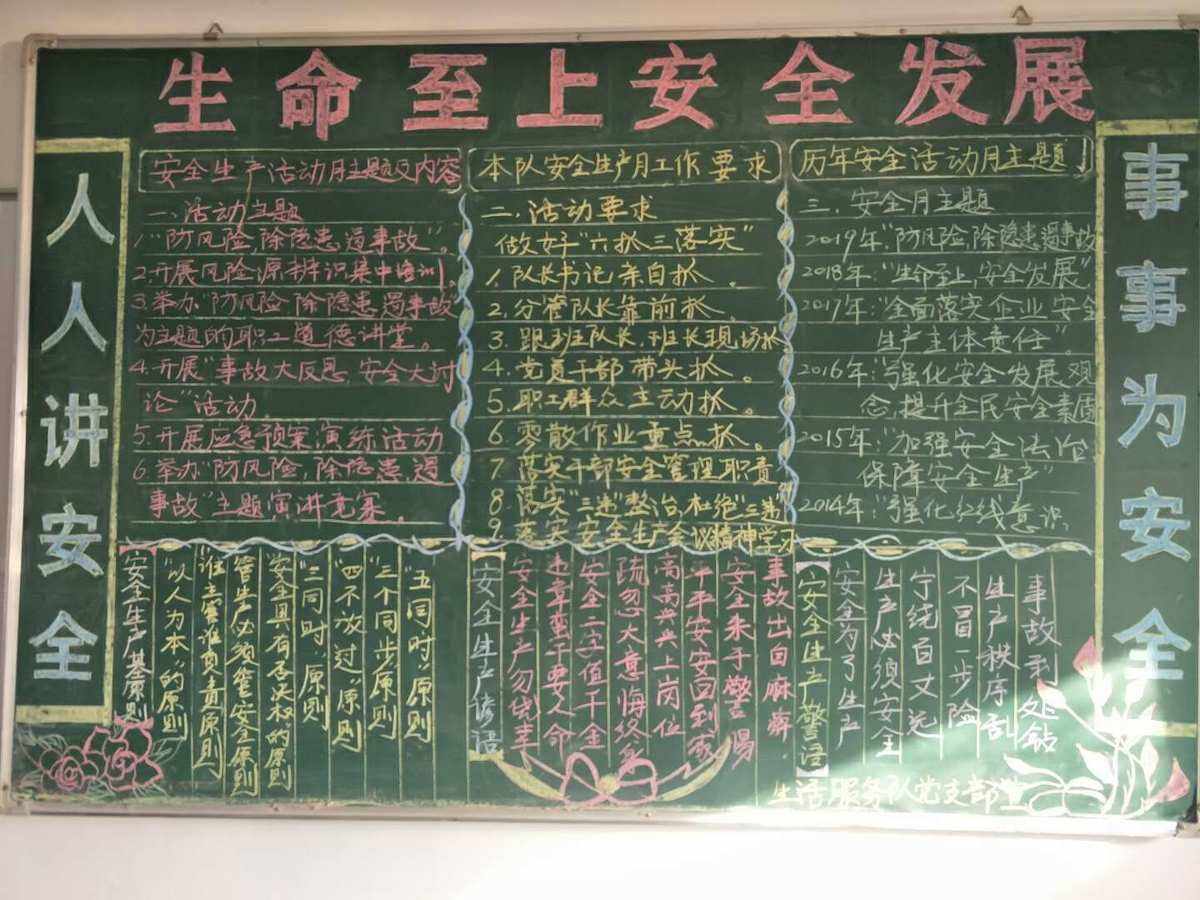 生命至上安全发展
人人讲安全
安全生产活动月主题及内容
一、活动主题
1."防风险,除隐患,遏事故"。
2.开展风险源辨识集中培训。
3.举办"防风险,除隐患,遏事故
为主题的职工道德讲堂。
4.开展"事故大反思,安全大讨
论"活动。
5.开展应急预案演练活动
6.举办"防风险,除隐患,遏
事故"主题演讲竞赛。
本队安全生产月工作要求
二、活动要求
做好"六抓三落实"
1.队长书记亲自抓。
2.分管队长靠前抓。
3.跟班队长,班长现场抓
4.党员干部带头抓。
5.职工群众主动抓。
6.零散作业重点抓。
7.落实干部安全管理职责。
8.落实"三违"整治,杜绝"三违"
9.落实安全生产会议精神学习
历年安全活动月主题
三、安全月主题
2019年:"防风险,除隐患,遏事故
2018年:"生命至上,安全发展"
2017年:"全面落实企业安全
生产主体责任"。
2016年:"强化安全发展观
念,提升全民安全素质
2015年:"加强安全法治
保障安全生产"
2014年:"强化红线意识
事事为安全
安全生产基原则
"以人为本"的原则
谁主管谁负责原则
管生产必须管安全原则
安全具有否决权的原则
"三同时"原则
"四不放过"原则
"三个同步"原则
"五同时"原则
安全生产谚语
安全生产勿侥幸
违章蛮干要人命
安全二字值千金
疏忽大意悔终身
高高兴兴上岗位
平平安安回到家
安全来于警惕
事故出自麻痹
【安全生产警语】
安全为了生产
生产必须安全
宁绕百丈远
不冒一步险
生产秩序乱
事故到处钻
生活服务队党支部宣